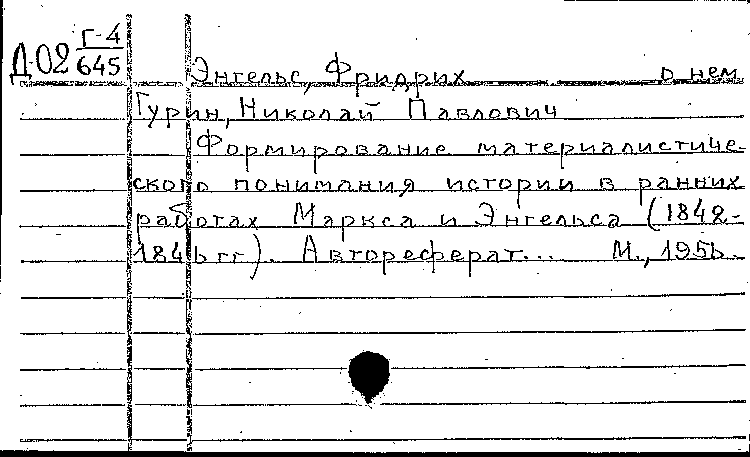 Г-4
Д-02 645
Энгельс, Фридрих о нем
Гурин, Николай Павлович
Формирование материалистиче-
ского понимания истории в ранних
работах Маркса и Энгельса (1842-
1846 гг). Автореферат... М., 1956.